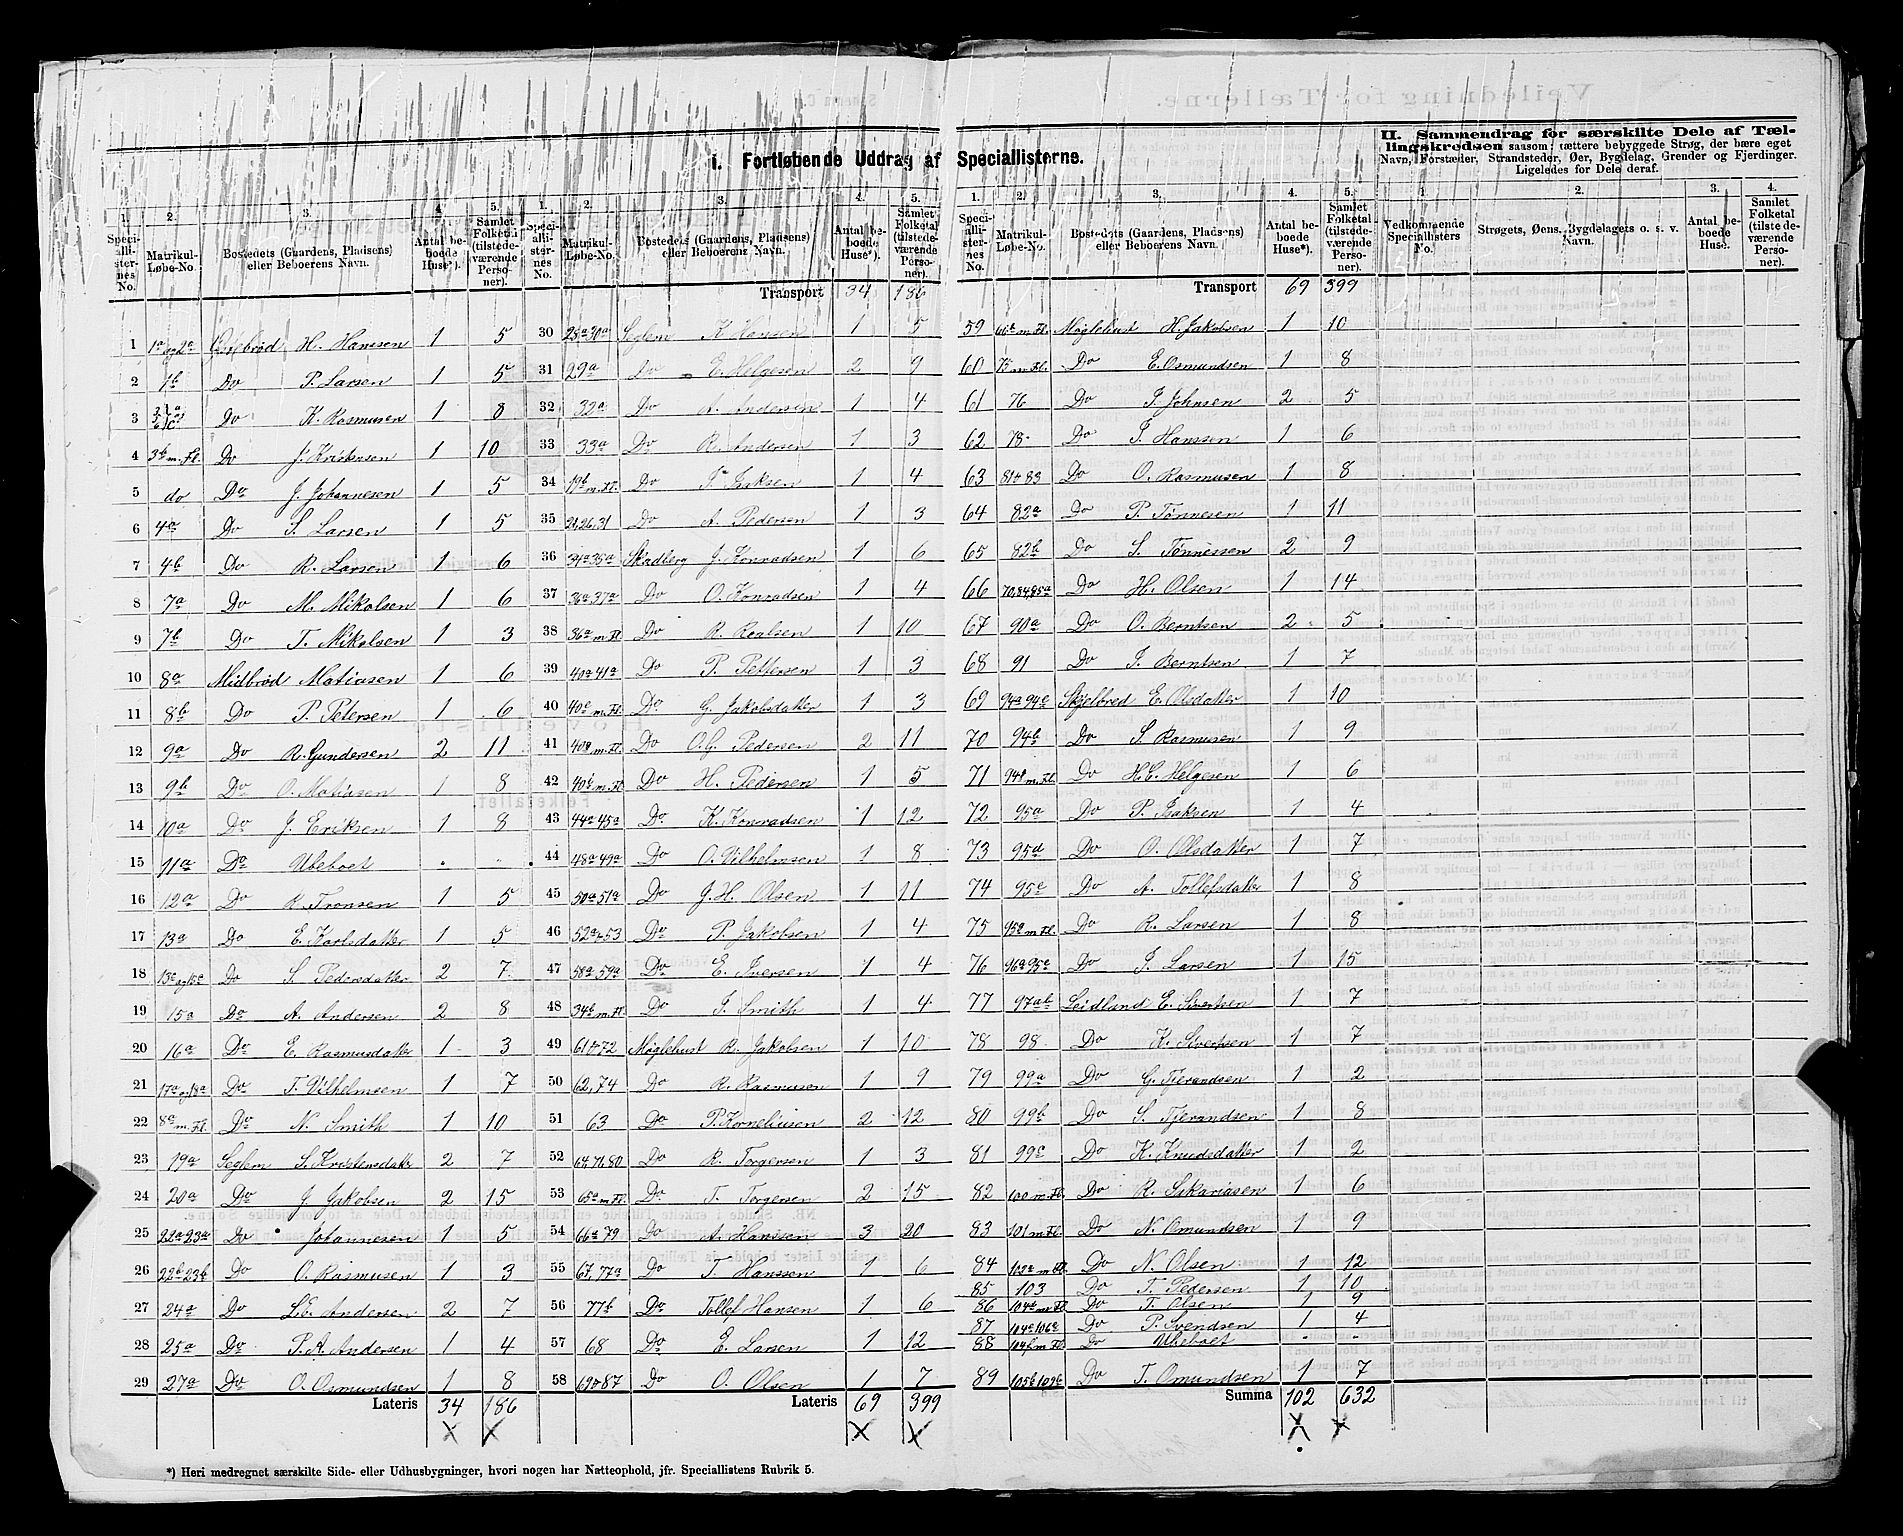 I. Fortløbende Uddrag af Speciallisterne.
II. Sammendrag for særskilte Dele af Tællingskredsen saasom: tættere bebyggede Strøg, der bære eget
Navn, Forstæder, Strandsteder, Øer, Bygdelag, Grender og Fjerdinger.
Ligeledes for Dele deraf.
1. 2. 3. 4. 5. 1. 2. 3. 4. 5. 1. 2. 3. 4. 5. 1. 2. 3. 4.
Speciallisternes No. Matrikul-Løbe-No. Bostedets (Gaardens, Pladsens) eller Beboerens Navn. Antal beboede Huse*). Samlet Folketal (tilstedeværende Personer).
Speciallisternes No. Matrikul-Løbe-No. Bostedets (Gaardens, Pladsens) eller Beboerens Navn. Antal beboede Huse*). Samlet Folketal (tilstedeværende Personer).
Speciallisternes No. Matrikul-Løbe-No. Bostedets (Gaardens, Pladsens) eller Beboerens Navn. Antal beboede Huse*). Samlet Folketal (tilstedeværende Personer).
Vedkommende Speciallisters No. Strøgets, Øens, Bygdelagets o. s. v. Navn. Antal beboede Huse. Samlet Folketal (tilstedeværende Personer).
1 1a og 2a H. Hanssen 1 5
2 1b Do P. Larsen 1 5
3 Do K. Rasmusen 1 8
4 3b m. Fl. Do J. Kristensen 1 10
5 do Do J. Johannesen 1 5
6 4a Do S. Larsen 1 5
7 4b Do R. Larsen 1 6
8 7a Do M. Mikalsen 1 6
9 7b Do T. Mikalsen 1 3
10 8a Midbrød Matiasen 1 6
11 8b Do P. Petersen 1 6
12 9a Do R. Gundersen 2 11
13 9b Do O. Matiasen 1 8
14 10a Do J. Eriksen 1 8
15 11a Do Ubeboet " "
16 12a Do R. Tronsen 1 5
17 13a Do E. Karlsdatter 1 5
18 13c og 15c Do S. Pedersdatter 2 7
19 15a Do A. Andersen 2 8
20 16a Do E. Rasmusdatter 1 3
21 17a og 18a Do T. Vilhelmsen 1 7
22 8a m. Fl. Do N. Smith 1 10
23 19a Seglem S. Kristensdatter 2 7
24 20a Do J. Jakobsen 2 15
25 22a 23a Do Johannesen 1 5
26 22b 23b Do O. Rasmusen 1 3
27 24a Do S. E. Andersen 2 7
28 25a Do P. A. Andersen 1 4
29 27a Do O. Osmundsen 1 8
Lateris 34 186
Transport 34 186
30 28a 30a Seglem K. Hansen 1 5
31 29a Do E. Helgesen 2 9
32 32a Do A. Andersen 1 4
33 33a Do R. Andersen 1 3
34 19b m. Fl. Do Isaksen 1 4
35 21, 26, 31 Do A. Pedersen 1 3
36 34a 35a Skadberg J. Konradsen 1 6
37 36a 37a Do O. Konradsen 1 4
38 36a m. Fl. Do R. Roalsen 1 10
39 40a 41a Do P. Pettersen 1 3
40 40c m. Fl. Do G. Jakobsdatter 1 3
41 m. Fl. Do O. G. Pedersen 2 11
42 40b m. Fl. Do H. Pedersen 1 5
43 44a 45a Do K. Konradsen 1 12
44 48a 49a Do O. Vilhelmsen 1 8
45 50a 51a Do J. H. Olsen 1 11
46 52a 53 Do P. Jakobsen 1 4
47 58a 59a Do E. Iversen 1 4
48 34b m. Fl. Do T. Smith 1 4
49 61 72 Møglehust R. Jakobsen 1 10
50 62, 74 Do R. Rasmusen 1 9
51 63 Do P. Korneliusen 2 12
52 64, 71, 80 Do R. Torgersen 1 3
53 65a m. Fl. Do T. Torgersen 2 15
54 66a 79 Do A. Hanssen 3 20
55 67, 77a Do T. Hanssen 1 6
56 77b Do Tollef Hansen 1 6
57 68 Do E. Larsen 1 12
58 69 87 Do O. Olsen 1 7
Lateris 69 399
Transport 69 399
59 66b m. Fl. Møglehust H. Jakobsen 1 10
60 m. Fl. Do E. Osmundsen 1 8
61 76 Do J. Johnsen 2 5
62 78 Do J. Hanssen 1 6
63 81 83 Do O. Rasmusen 1 8
64 82a Do P. Tønnesen 1 11
65 82b Do S. Tønnessen 2 9
66 70, 84, 85a Do H. Olsen 1 14
67 90a Do O. Berntsen 2 5
68 91 Do J. Berntsen 1 7
69 94a 94c Skjelbred E. Olsdatter 1 10
70 94b Do S. Rasmusen 1 9
71 94d m. Fl. Do H. E. Helgesen 1 6
72 95a Do P. Isaksen 1 4
73 95d Do O. Olsdatter 1 7
74 95c Do A. Tollefsdatter 1 8
75 m. Fl. Do R. Larsen 1 8
76 96a 95c Do J. Larsen 1 15
77 97ab Leidland E. Sivertsen 1 7
78 98 Do K. Sivertsen 1 7
79 99a Do G. Tjerandsen 1 2
80 99b Do S. Tjerandsen 1 8
81 99c Do K. Knudsdatter 1 2
82 100 m. Fl. Do R. Sakariasen 1 6
83 101 m. Fl. Do N. Omundsen 1 9
84 102a m. Fl. Do N. Olsen 1 12
85 103 Do T. Pedersen 1 10
86 104a m. Fl. Do T. Olsen 1 9
87 104c 106c Do P. Svendsen 1 4
88 m. Fl. Do Ubeboet " "
89 105b 109c Do T. Omundsen 1 7
Summa 102 632
*) Heri medregnet særskilte Side- eller Udhusbygninger, hvori nogen har Natteophold, jfr. Speciallistens Rubrik 5.